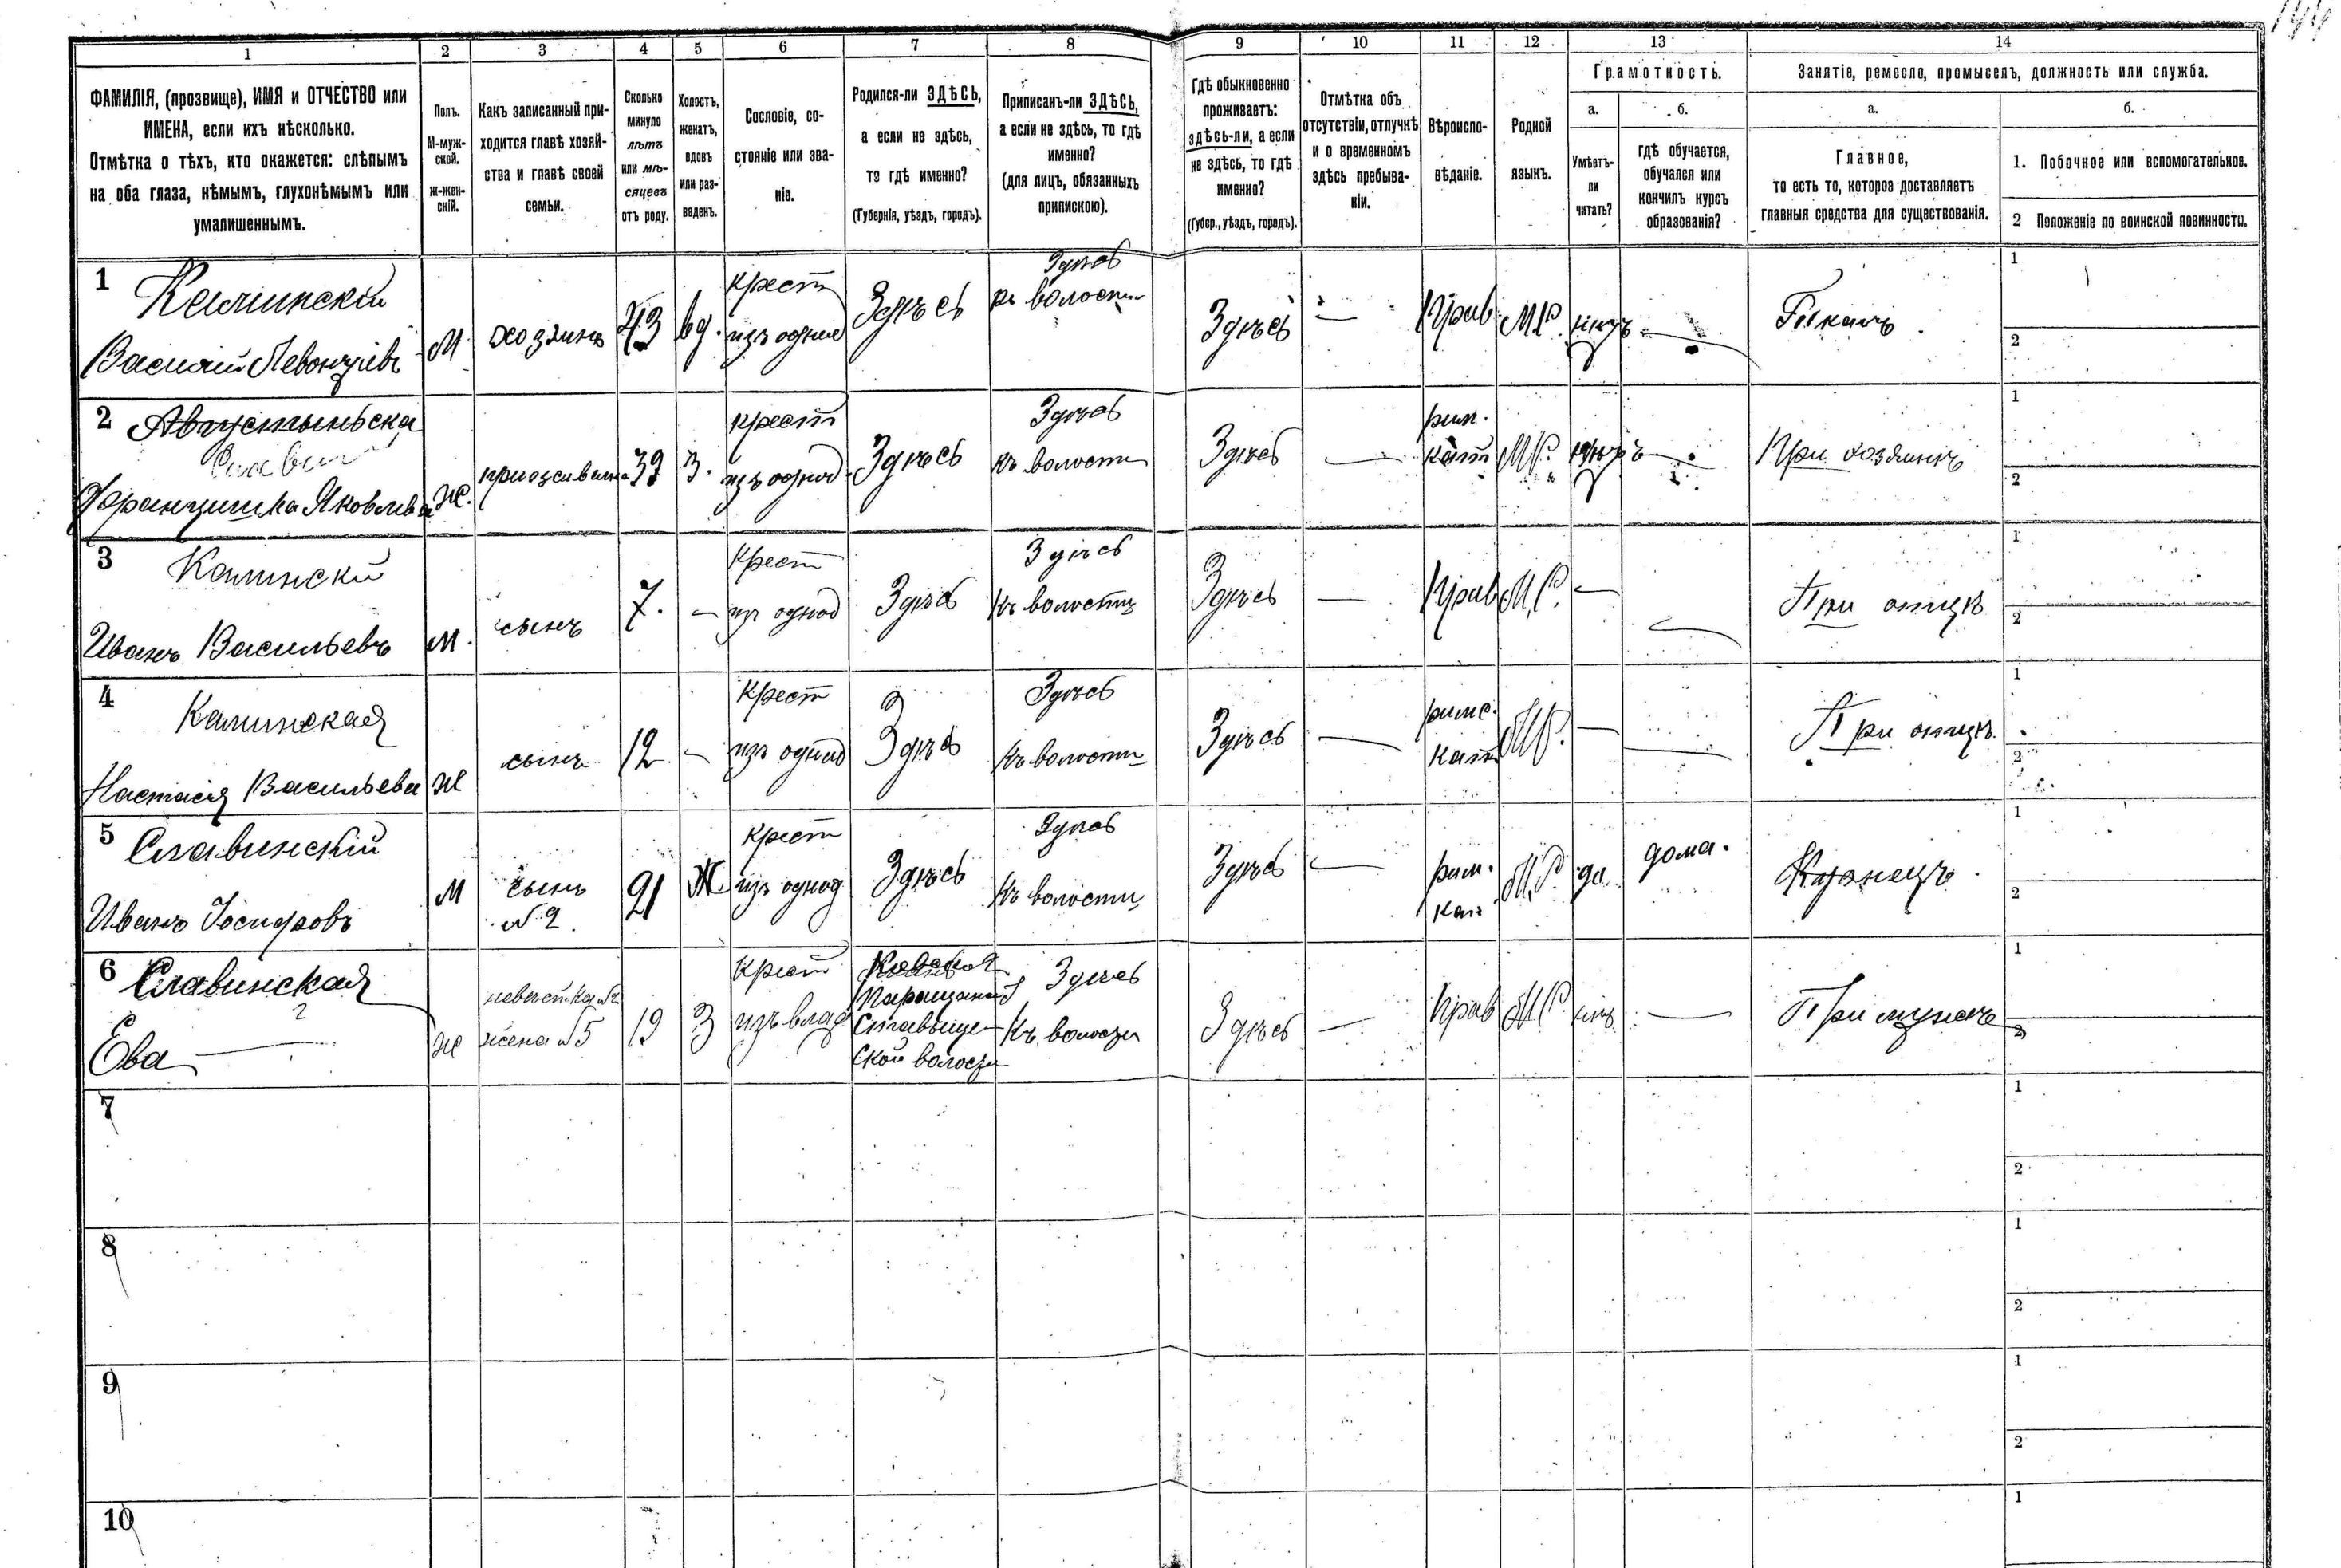 1 2 3 4 5 6 7 8 9 10 11 12 13 14
ФАМИЛІЯ, (прозвище), ИМЯ и ОТЧЕСТВО или
ИМЕНА, если ихъ нѣсколько.
Отмѣтка о тѣхъ, кто окажется: слѣпымъ
на оба глаза, нѣмымъ, глухонѣмымъ или
умалишеннымъ.
Полъ.
М-муж-
ской.
ж-жен-
скій.
Какъ записанный при-
ходится главѣ хозяй-
ства и главѣ своей
семьи.
Сколько
минуло
лѣтъ
или мѣ-
сяцевъ
отъ роду.
Холостъ,
женатъ,
вдовъ
или раз-
веденъ.
Сословіе, со-
стояніе или зва-
ніе.
Родился-ли ЗДѢСЬ,
а если не здѣсь,
то гдѣ именно?
(Губернія, уѣздъ, городъ).
Приписанъ-ли ЗДѢСЬ,
а если не здѣсь, то гдѣ
именно?
(для лицъ, обязанныхъ
припискою).
Гдѣ обыкновенно
проживаетъ:
здѣсь-ли, а если
не здѣсь, то гдѣ
именно?
(Губер., уѣздъ, городъ).
Отмѣтка объ
отсутствіи, отлучкѣ
и о временномъ
здѣсь пребыва-
ніи.
Вѣроиспо-
вѣданіе.
Родной
языкъ.
Грамотность.
а.
Умѣетъ-
ли
читать?
б.
гдѣ обучается,
обучался или
кончилъ курсъ
образованія?
Занятіе, ремесло, промыселъ, должность или служба.
а.
Главное,
то есть то, которое доставляетъ
главныя средства для существованія.
б.
1. Побочное или вспомогательное.
2 Положеніе по воинской повинности.
1
Василій
М
хозяинъ
43
вд.
крест
изъ однод
Здѣсь
Здѣсь
къ волости
Здѣсь
—
Прав
М.Р.
нѣтъ
—
1
2
2
Францишка Яковлева
ж.
3.
крест
изъ однод
Здѣсь
Здѣсь
къ волости
Здѣсь
—
рим.
кат
М.Р.
нѣтъ
—
При хозяинѣ
1
2
3
Калински
Иванъ Васильевъ
м.
сынъ
7.
—
крест
из однод
Здѣсь
Здѣсь
къ волости
Здѣсь
—
Прав
М.Р.
—
При отцѣ
1
2
4
Калинская
Настасія Васильева
ж
сынъ
12
—
крест
изъ однод
Здѣсь
Здѣсь
къ волости
Здѣсь
—
римс.
кат
М.Р.
—
—
При отцѣ
1
2
5
Славинскій
Иванъ Іосифовъ
М
сынъ
№ 2
21
Ж
крест
изъ однод
Здѣсь
Здѣсь
къ волости
Здѣсь
—
рим.
кат
М.Р.
да
дома.
Кузнецъ
1
2
6
Славинская
Ева —
ж
невѣстка №2
жена №5
19
З
крест
изъ влад
Ставище-
ской волости
Здѣсь
къ волости
Здѣсь
—
Прав
М.Р.
нѣт
—
При мужѣ
1
2
7
1
2
8
1
2
9
1
2
10
1